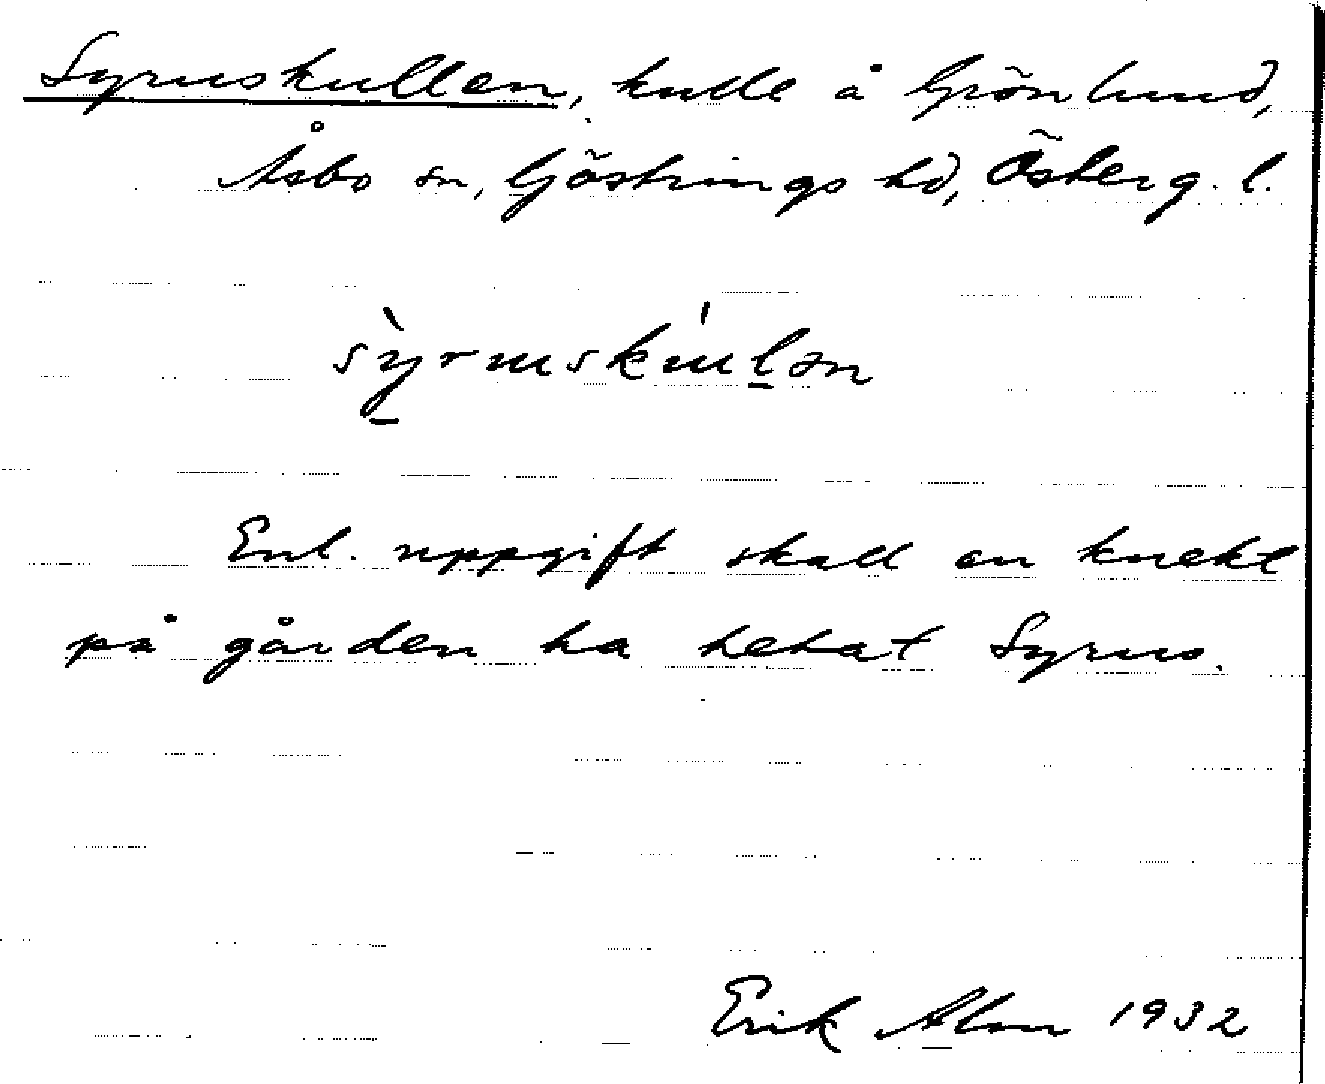 Syruskullen, kulle å Grönlund,
Åsbo sn, Göstrings hd, Österg. l.
sỳruskúlən
Enl. uppgift skall en knekt
på gården ha hetat Syrus.
Erik Alm 1932